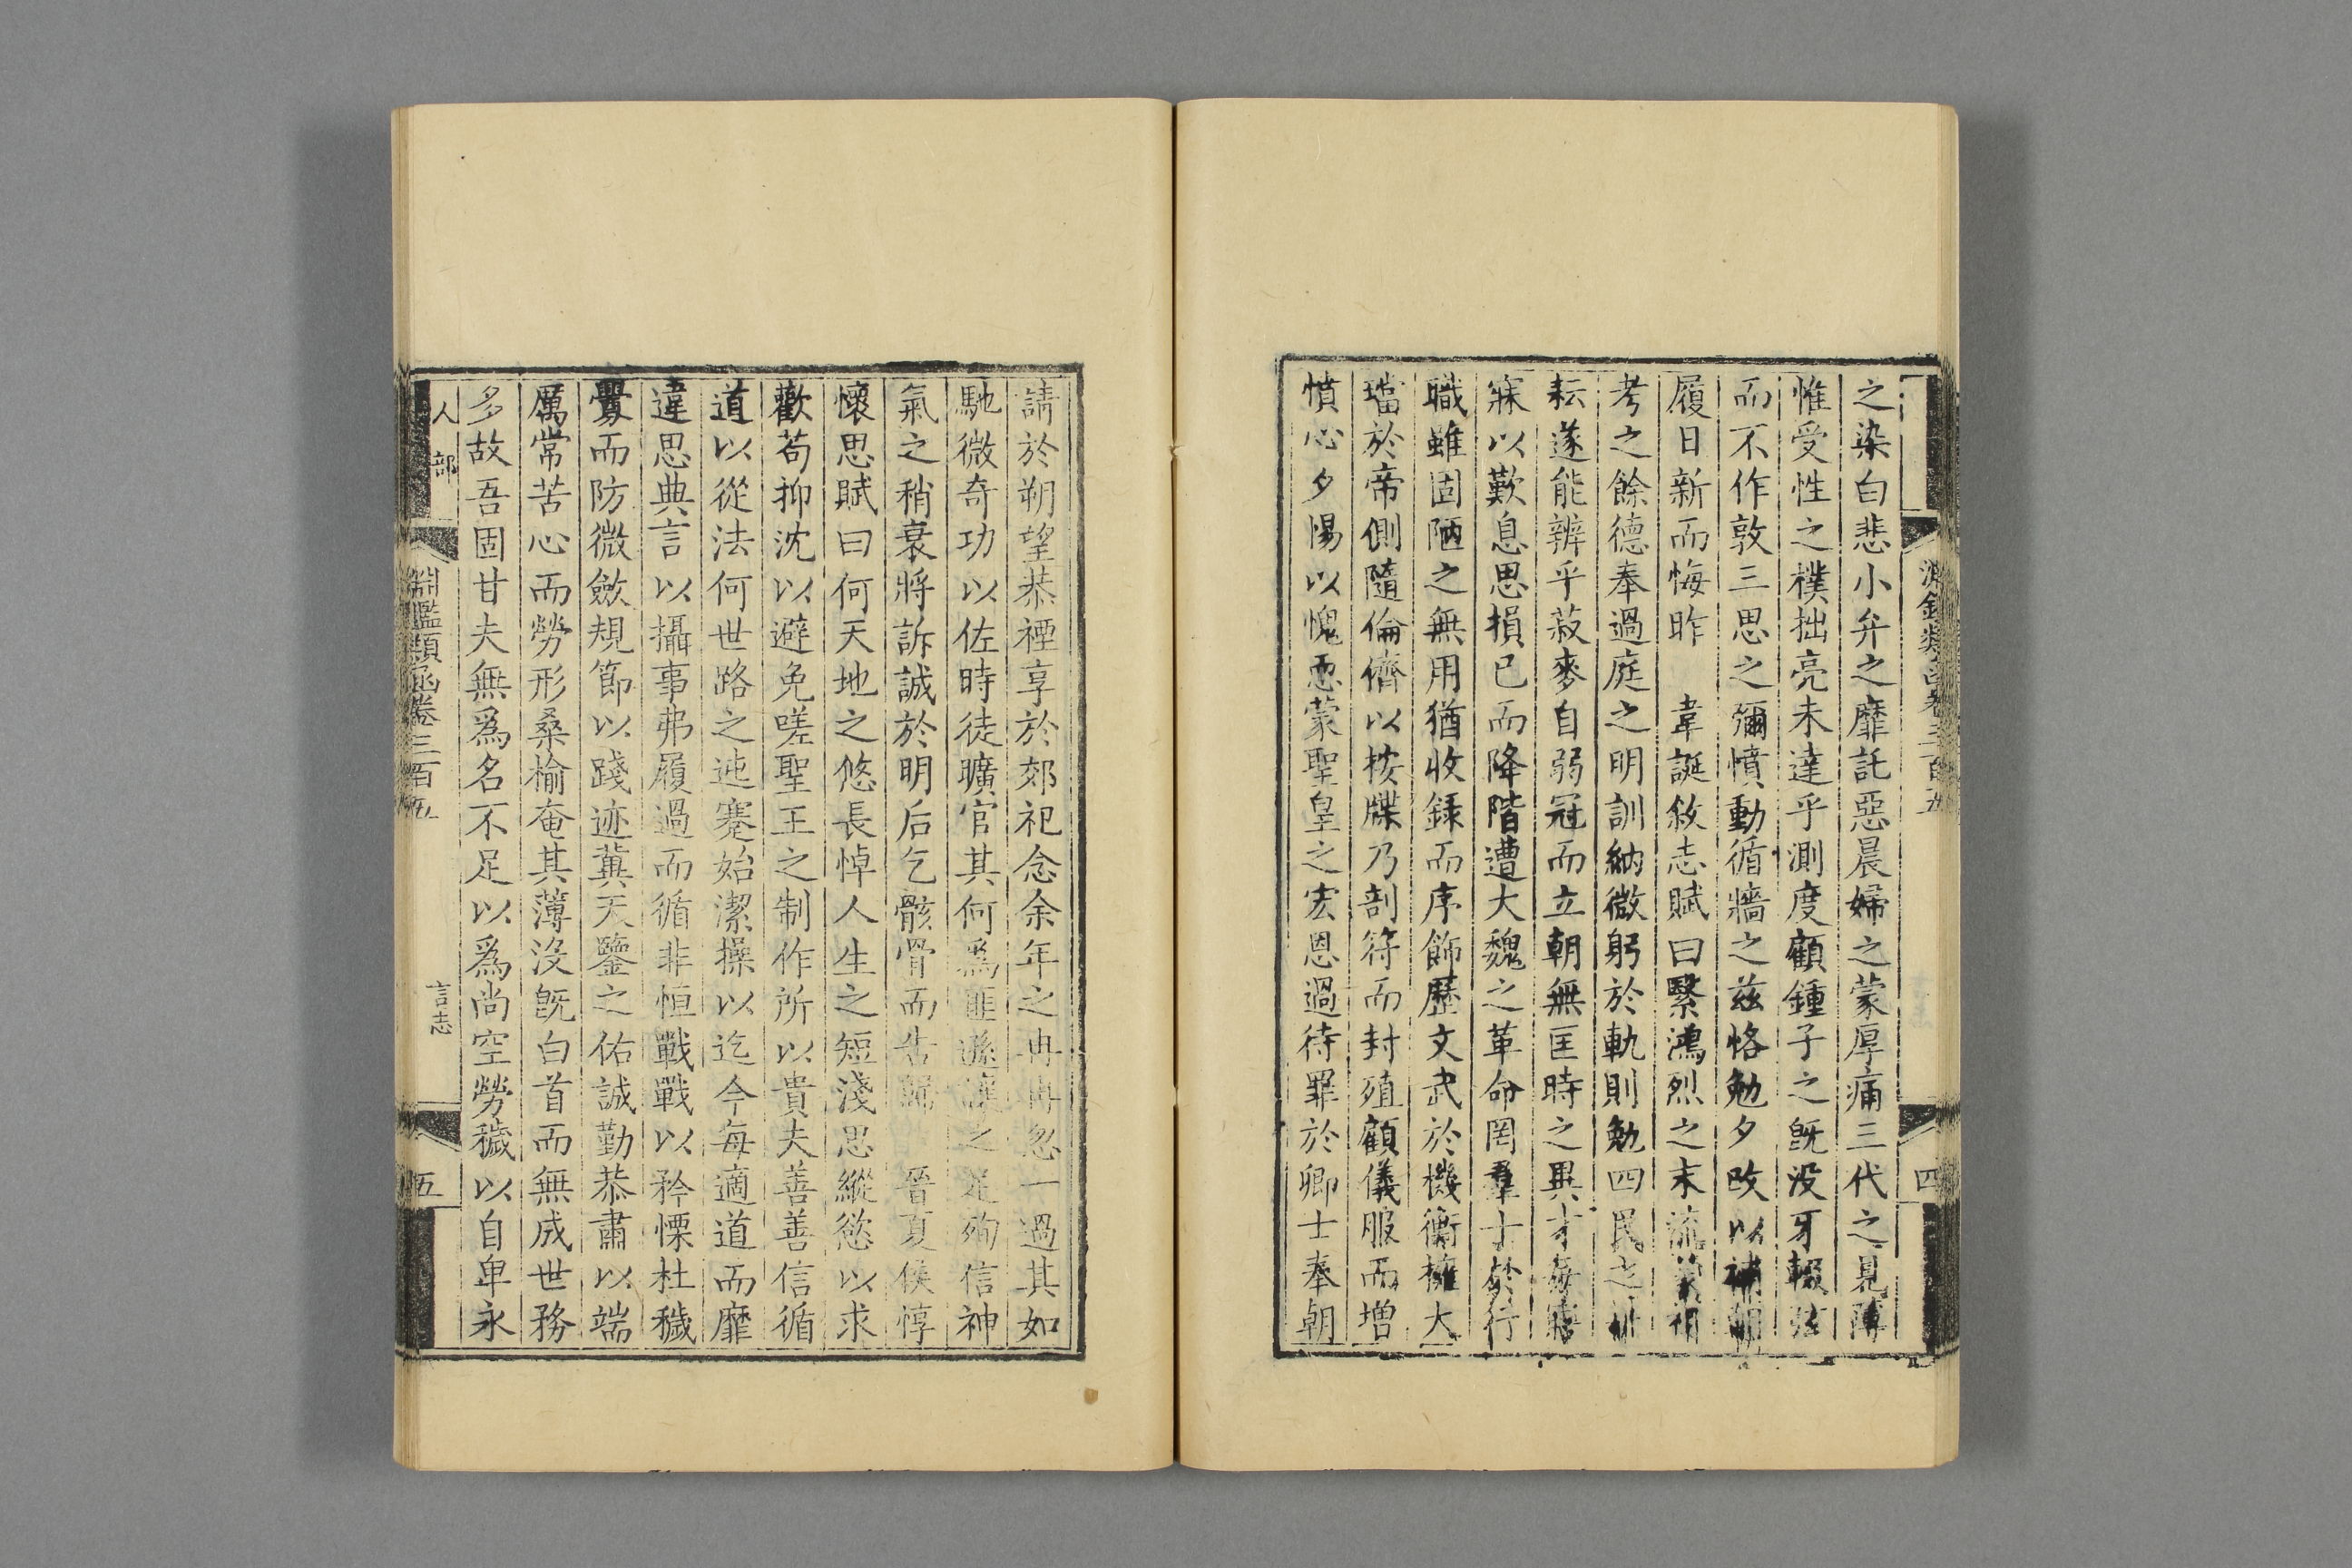 之染白悲小弁之靡託惡晨婦之蒙厚痛三代之見陳
惟受性之樸拙亮未達乎測度顧鍾子之旣没牙輟絃
而不作敦三思之彌憤動循牆之兹恪勉夕改以補朝
履日新而悔昨　韋誕敘志賦曰繄鴻烈之末流蒙祖
考之餘德奉過庭之明訓納微躬於軌則勉四民之
耘遂能辨乎菽麥自弱冠而立朝無匡時之異才每寤
寐以歎息思損已而降階遭大魏之革命罔羣士於行
職雖固陋之無用猶收録而序飾歷文武於機衡擁大
璫於帝側隨倫儕以按牒乃剖符而封殖顧儀服而增
憤心夕惕以愧恧蒙聖皇之宏恩過待罪於卿士奉朝
四
請於朔望恭禋享於郊祀念余年之冉冉忽一過其如
馳微奇功以佐時徒曠官其何爲匪遜讓之足殉信神
氣之稍衰將訴誠於明后乞骸骨而告歸　晉夏侯惇
懷思賦曰何天地之悠長悼人生之短淺思縱慾以求
歡苟抑沈以避免嗟聖王之制作所以貴夫善善信循
道以從法何世路之迍蹇始潔操以迄今每適道而靡
違思典言以攝事弗履過而循非恒戰戰以矜慄杜穢
釁而防微斂規節以踐迹冀天鑒之佑誠勤恭肅以端
厲常苦心而勞形桑榆奄其薄没旣白首而無成世務
多故吾固甘夫無爲名不足以爲尚空勞穢以自卑永
人部
淵鑑類函卷三百五
言志
五